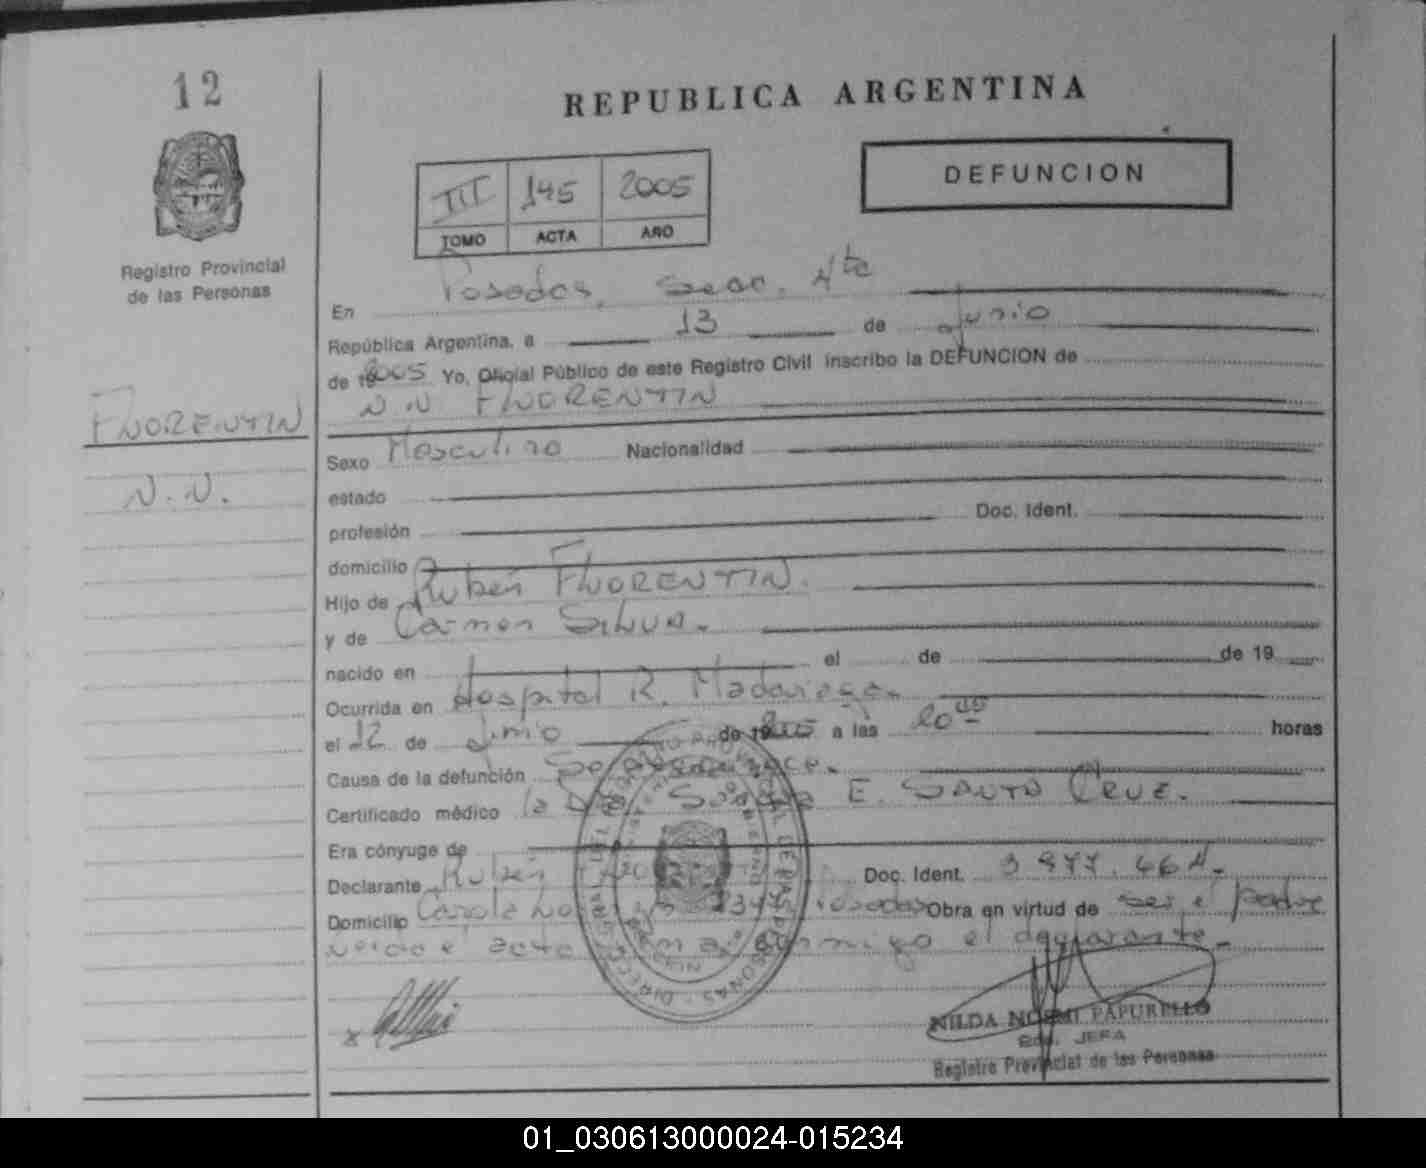 12
REPUBLICA ARGENTINA
DEFUNCION
III 145 2005
TOMO ACTA AÑO
Registro Provincial
de las Personas
En Posadas, Secc. 4ta
República Argentina, a 13 de Junio
de 19 2005 Yo, Oficial Público de este Registro Civil inscribo la DEFUNCION de
N.N FLORENTIN
FLORENTIN
N.N.
Sexo Masculino Nacionalidad
estado
profesión Doc. Ident.
domicilio
Hijo de Rubén FLORENTIN.
y de Carmen SILVA.
nacido en el de de 19
Ocurrida en Hospital R. Madariaga.
el 12 de Junio de 19 2005 a las 20 horas
Causa de la defunción
Certificado médico la Dra E. SANTA CRUZ.
Era cónyuge de
Declarante Rubén Doc. Ident.
Domicilio Posadas Obra en virtud de ser el padre
el acta conmigo el declarante.
NILDA NOEMI PAPURELLO
JEFA
Registro Provincial de las Personas
01_030613000024-015234